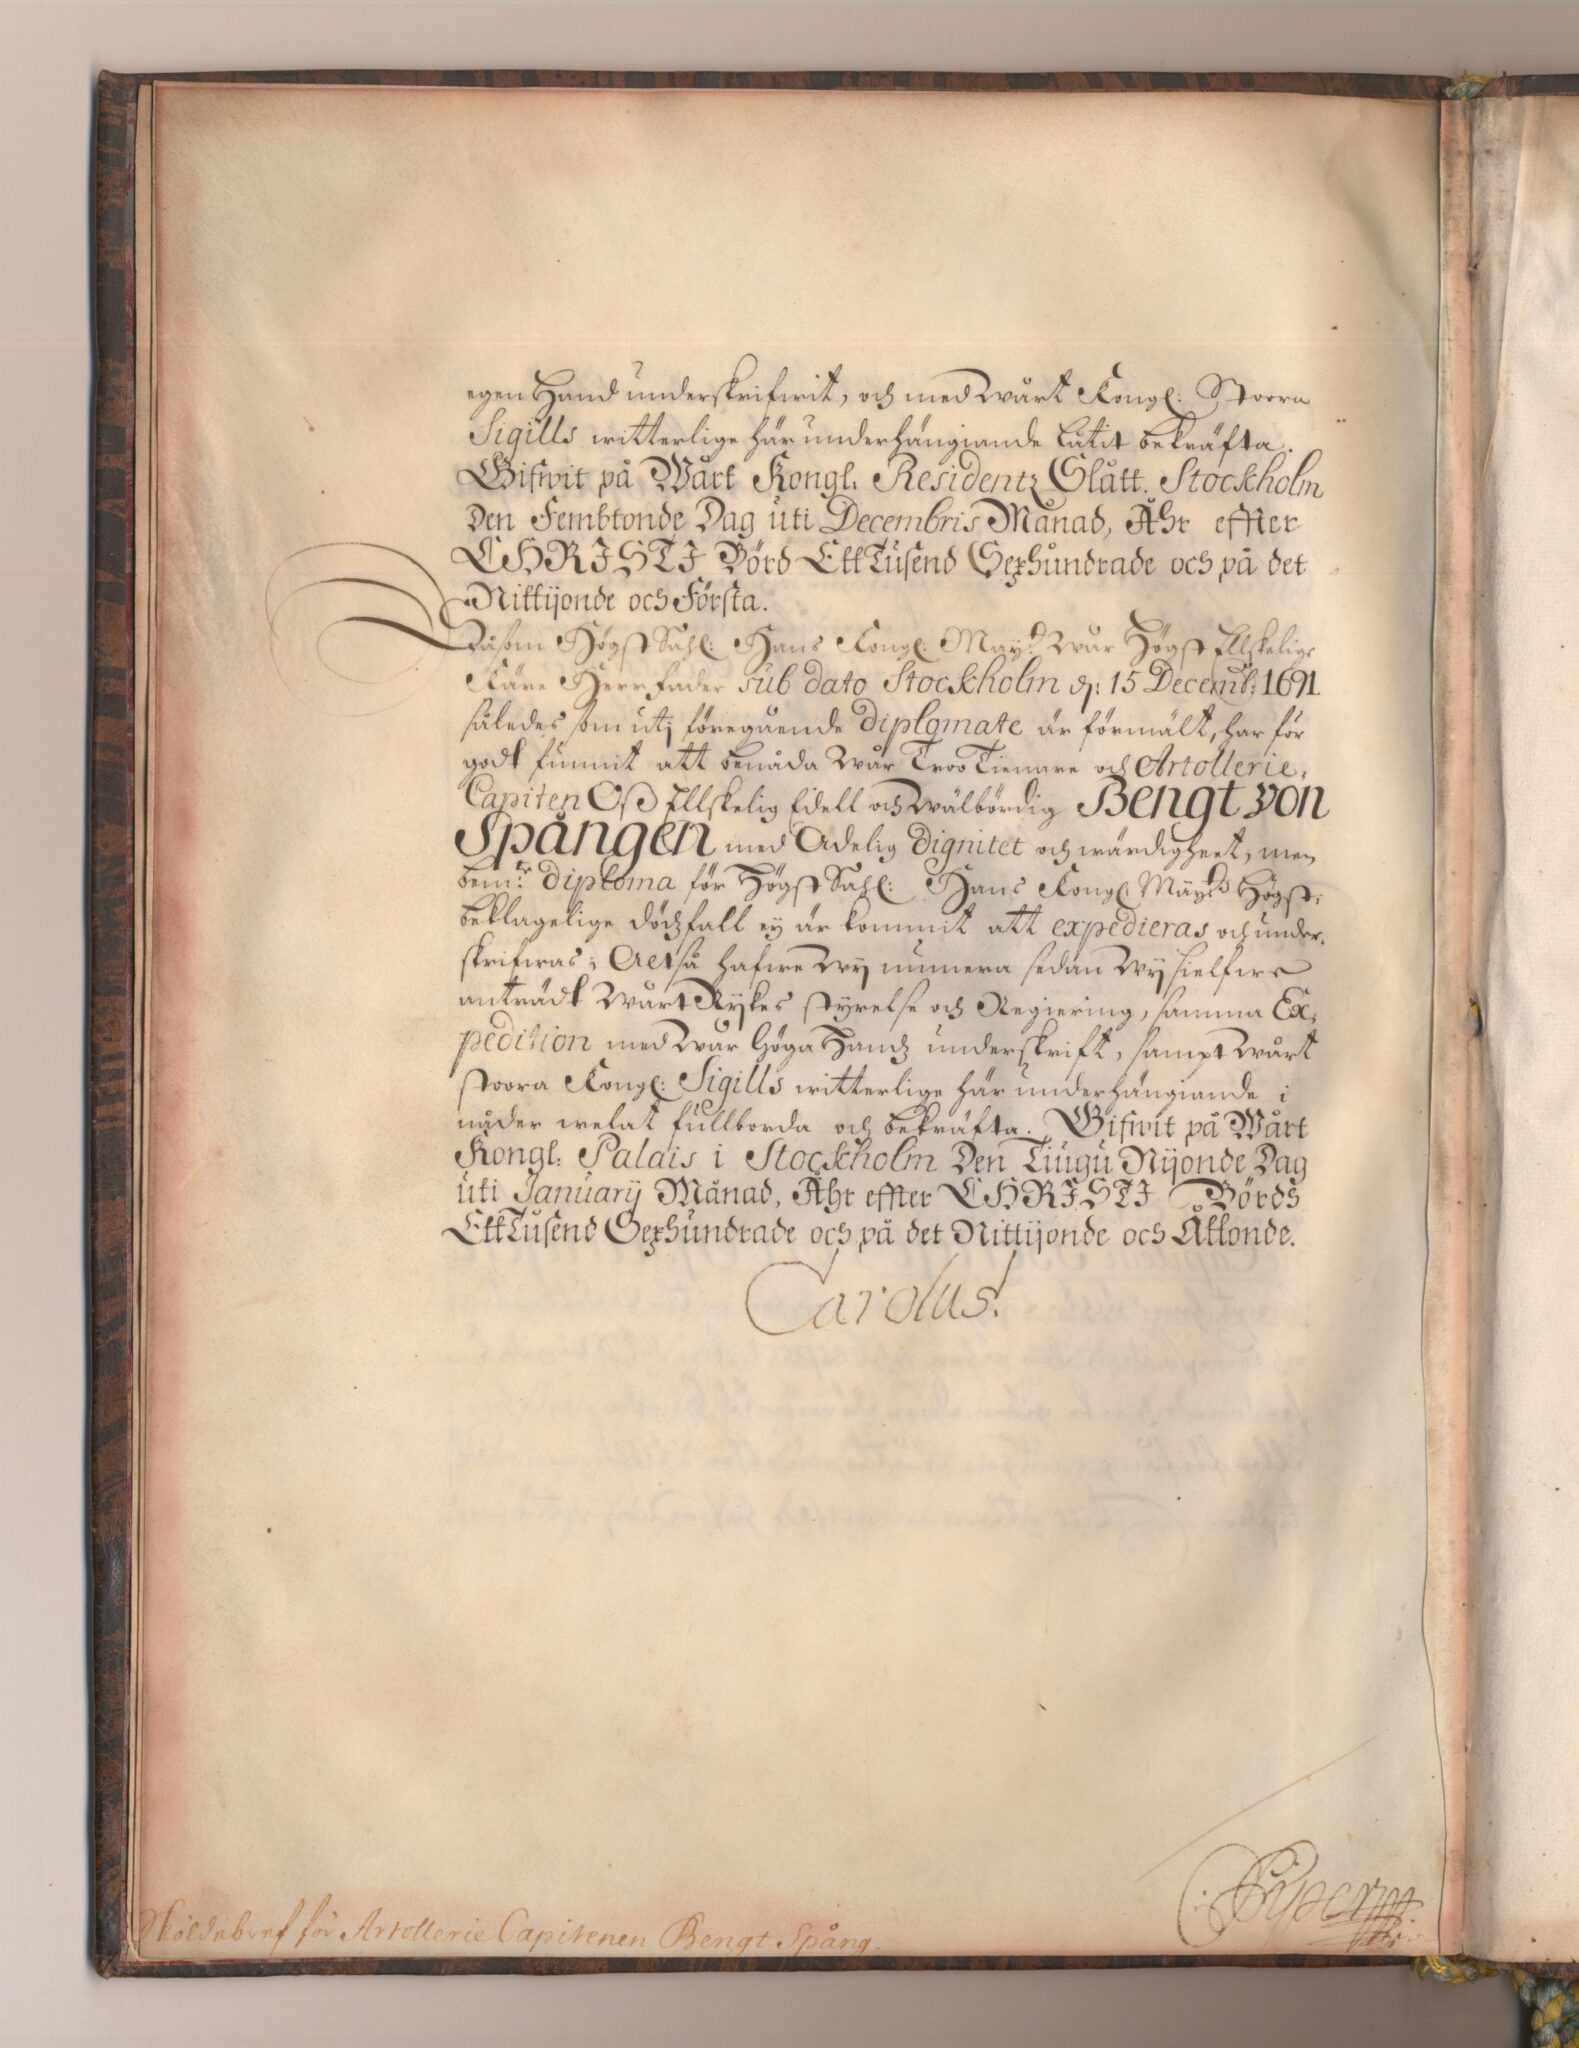 egen Hand underskrifwit, och med Wårt Kongl: Stoora
Sigills witterlige här underhängiande låtit bekräfta.
Gifwit på Wårt Kongl: Residentz Slått. Stockholm
Den Fembtonde Dag uti Decembris Månad, Åhr effter
CHRISTI Börd Ett Tusend Sexhundrade och på det
Nittijonde och Första.
Såsom Högst Sahl: Hans Kongl: Mayt: Wår Högst Ellskelige
Käre Herr Fader sub dato Stockholm d: 15 Decemb: 1691
således som utj föregående diplomate är förmält, har för
godt funnit att benåda Wår Troo Tienare och Artollerie,
Capiten Oß Ellskelig Edell och Wälbördig Bengt von
Spången med Adelig dignitet och wärdigheet, men
bem:te diploma för Högst Sahl: Hans Kongl: Mayt:s Högst,
beklagelige dödzfall ey är kommit att expedieras och under,
skrifwas; Altså hafwe Wij numera sedan Wij sielfwe
anträdt Wårt Rykes styrelse och Regiering, samma Ex,
pedition med Wår Höga Handz underskrift, sampt Wårt
stoora Kongl: Sigills witterlige här underhängiande i
nåder welat fullborda och bekräfta. Gifwit på Wårt
Kongl: Palais i Stockholm Den Tiugu Nijonde Dag
uti Januarij Månad, Åhr effter CHRISTI Börds
Ett Tusend Sexhundrade och på det Nittijonde och Åttonde.
Carolus.
C: Piper
Sköldebref för Artollerie Capitenen Bengt Spång.